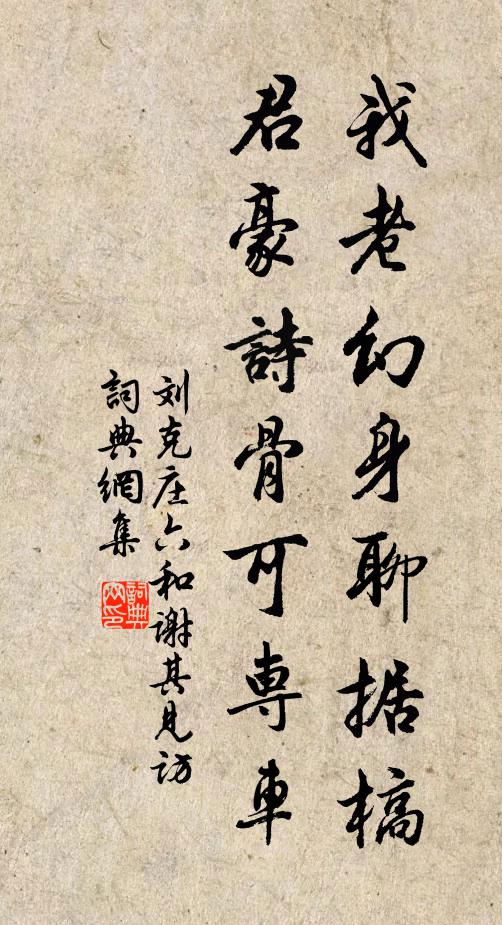 我老幻身聊据槁
君豪詩骨可専車
刘克庄六和谢其見访
詞典網集
詞典網印